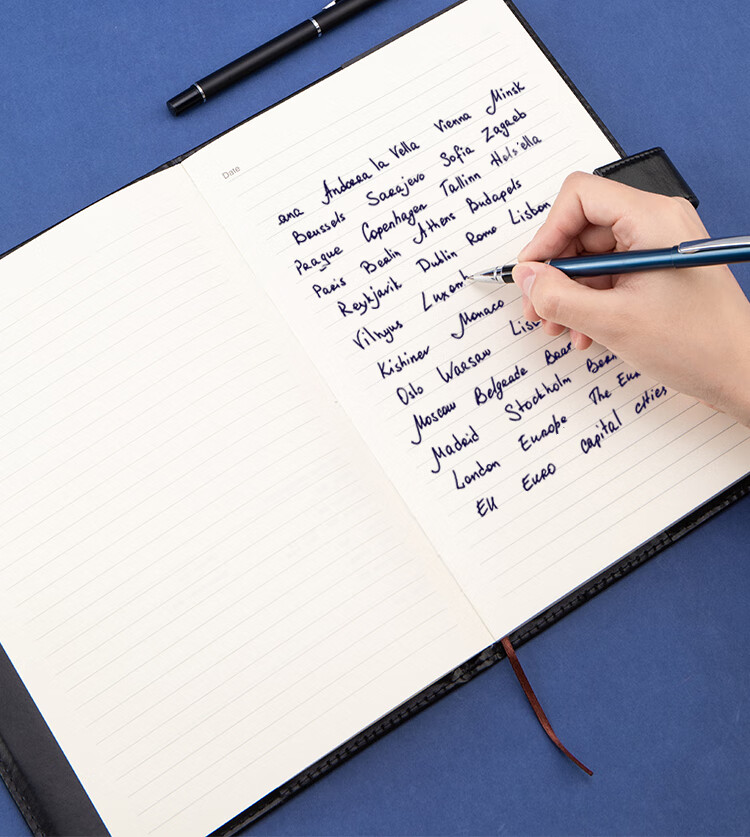 Date
ana Andorra la Vella Vienna Minsk
Brussels Sarajevo Sofia Zagreb
Prague Copenhagen Tallinn Hels'ella
Paris Berlin Athens Budapels
Reykjavik Dublin Rome Lisbon
Vilnyus Luxemb
Kishinev Monaco
Oslo Warsaw
Moscow Belgrade
Madrid Stockholm
London Europe The
EU EURO capital cities